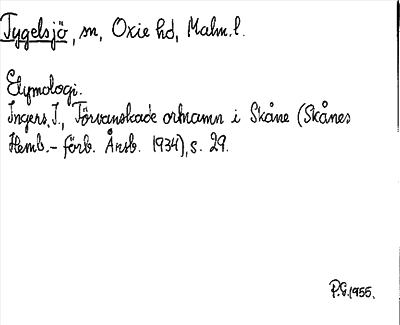 Tygelsjö, sn, Oxie hd, Malm. l.
Etymologi.
Ingers, I., Förvanskade ortnamn i Skåne (Skånes
Hemb.- förb. Årsb. 1934), s. 29.
P.G. 1955.